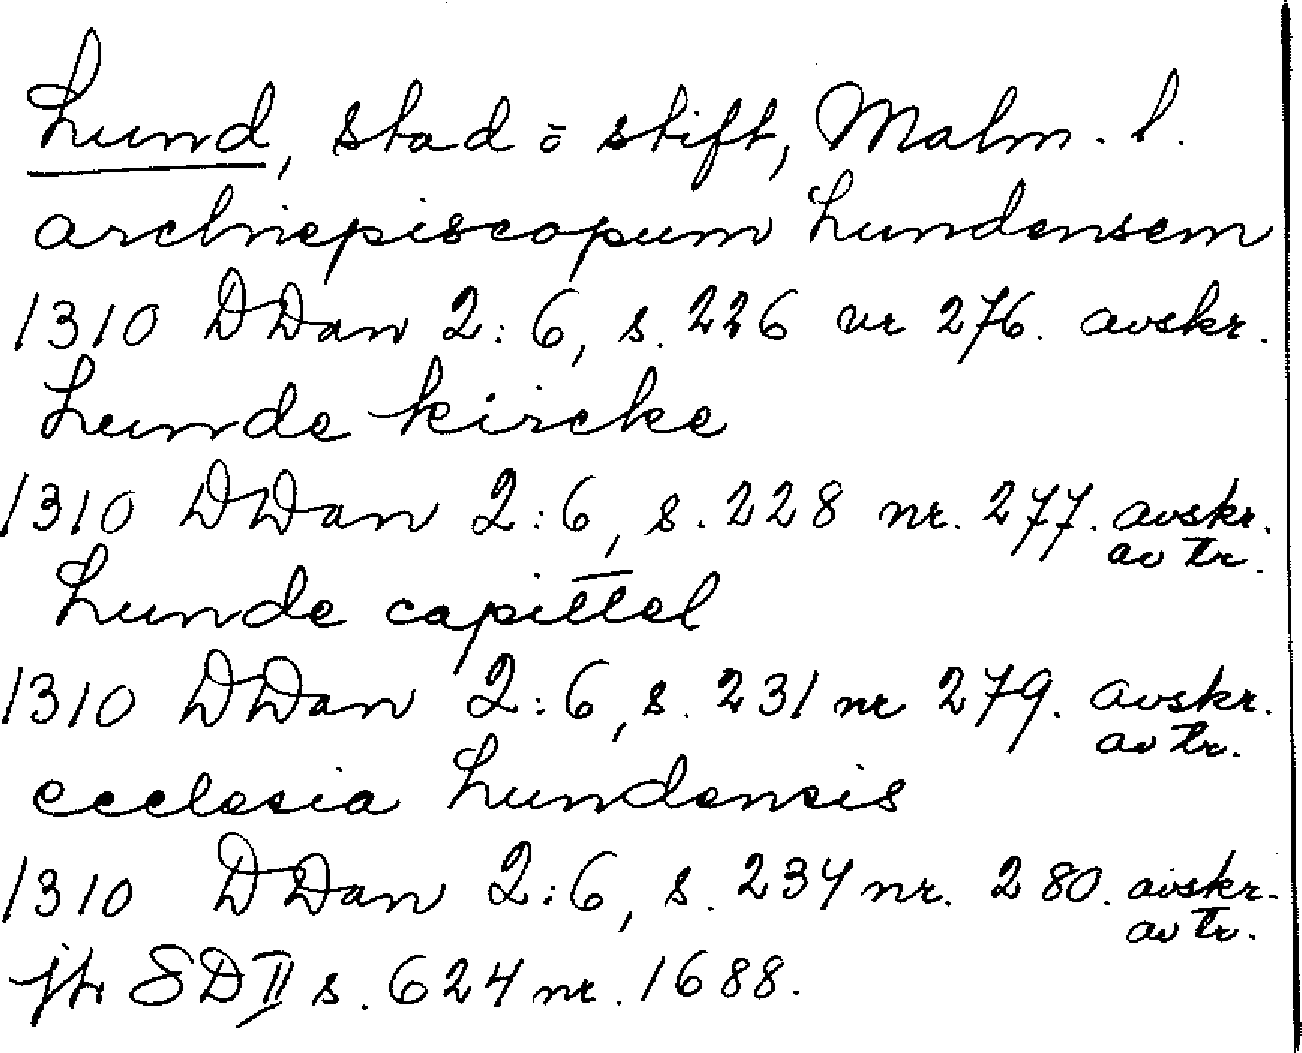 Lund, stad ō stift, Malm. l.
archiepiscopum Lundensem
1310 DDan 2:6, s. 226 nr 276. avskr.
Lunde kircke
1310 DDan 2:6, s. 228 nr. 277. avskr.
av tr.
Lunde capittel
1310 DDan 2:6, s. 231 nr 279. avskr.
av tr.
ecclesia Lundensis
1310 DDan 2:6, s. 234 nr. 280. avskr.
av tr.
jfr SD II s. 624 nr. 1688.